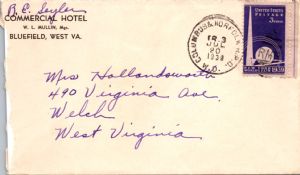 R. E. Seyler
COMMERCIAL HOTEL
W. L. MULLIN, MGR.
BLUEFIELD, WEST VA.
TR. 3
JUL
20
1939
R.P.O.
UNITED STATES
POSTAGE
3 CENTS
1939
Mrs Hollandsworth
490 Virginia Ave.
Welch
West Virginia